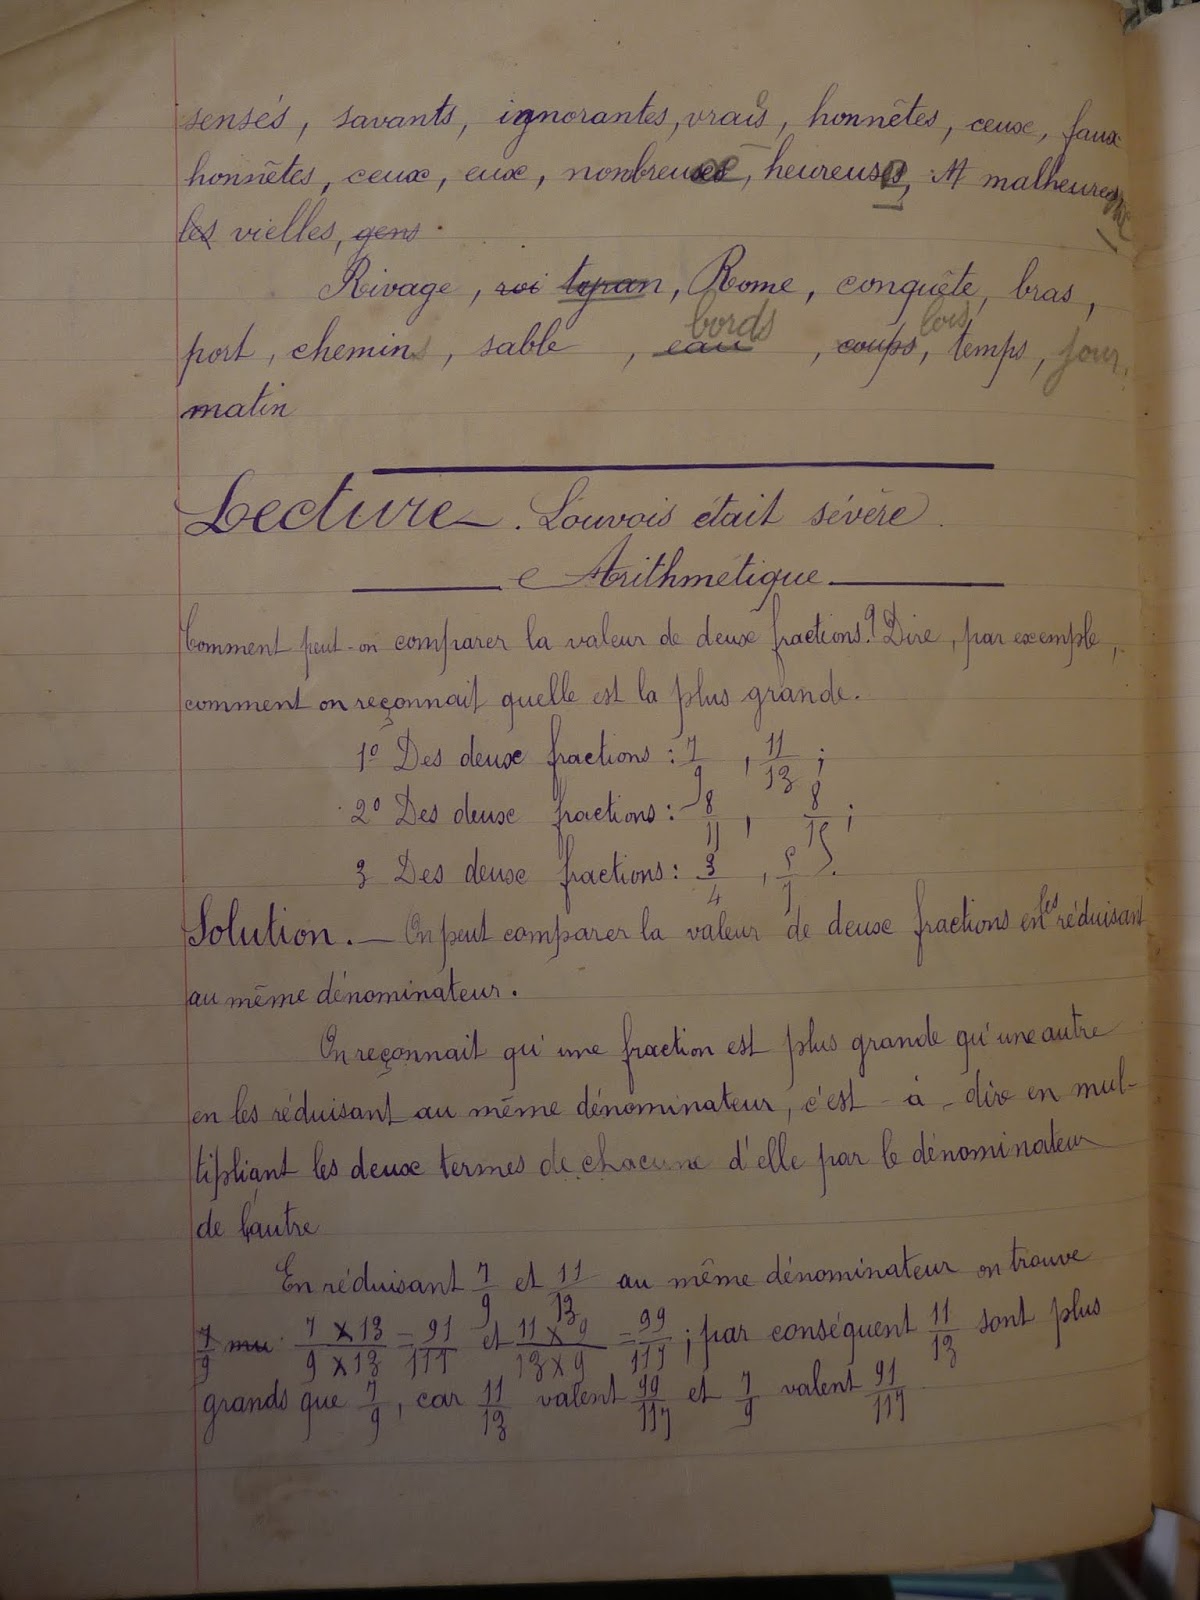 sensés, savants, ignorantes, vrais, honnêtes, ceux, faux
honnêtes, ceux, eux, nonbreuses, heureuse, malheureuse
les vielles, gens
Rivage, roi tyran, Rome, conquête, bras,
bords lois
port, chemins, sable, eau, coups, temps, jour,
matin
Lecture. Louvois était sévère.
Arithmétique
Comment peut-on comparer la valeur de deux fractions? Dire, par exemple,
comment on reçonnait quelle est la plus grande.
1º Des deux fractions : 7/9, 11/13;
2º Des deux fractions : 8/11, 8/15;
3 Des deux fractions : 3/4, 5/7.
Solution. — On peut comparer la valeur de deux fractions en les réduisant
au même dénominateur.
On reçonnait qu'une fraction est plus grande qu'une autre
en les réduisant au même dénominateur, c'est-à-dire en mul-
tipliant les deux termes de chacune d'elle par le dénominateur
de l'autre
En réduisant 7/9 et 11/13 au même dénominateur on trouve
7/9 mu 7 x 13 / 9 x 13 = 91/117 et 11 x 9 / 13 x 9 = 99/117; par conséquent 11/13 sont plus
grands que 7/9, car 11/13 valent 99/117 et 7/9 valent 91/117